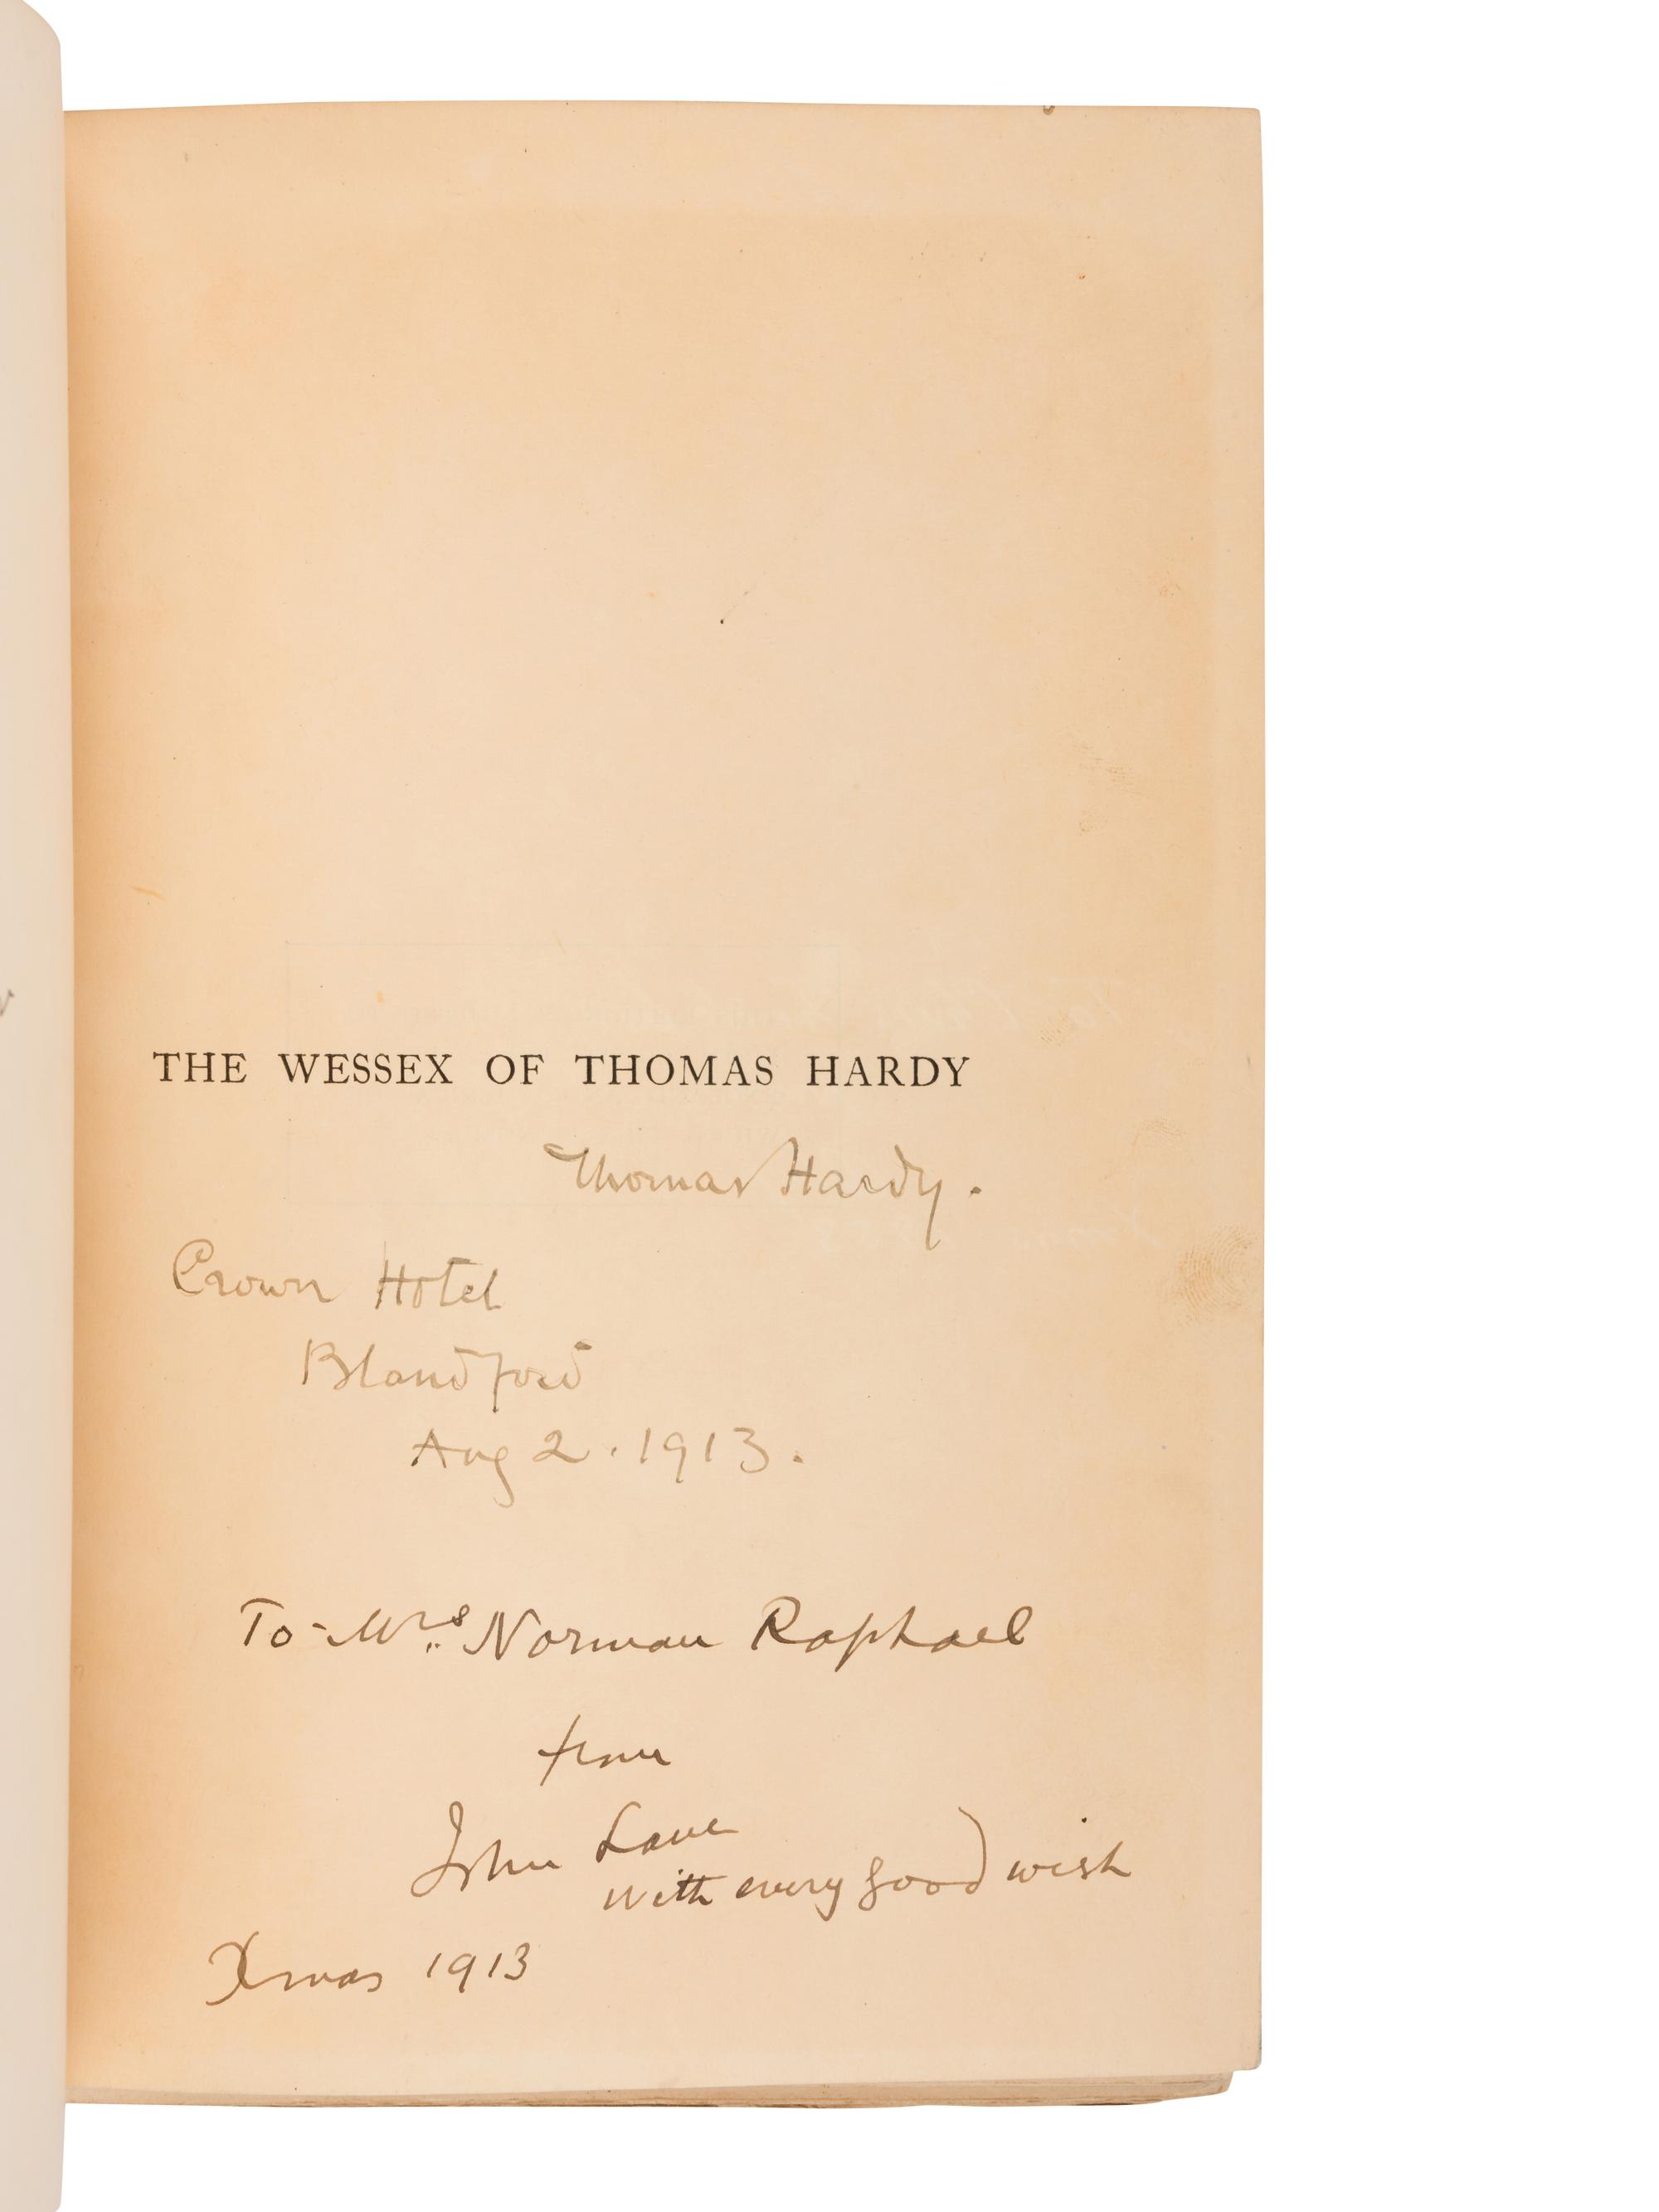 THE WESSEX OF THOMAS HARDY
Thomas Hardy.
Crown Hotel
Blandford
Aug 2. 1913.
To Mrs Norman Raphael
from
John Lane
with every good wish
Xmas 1913